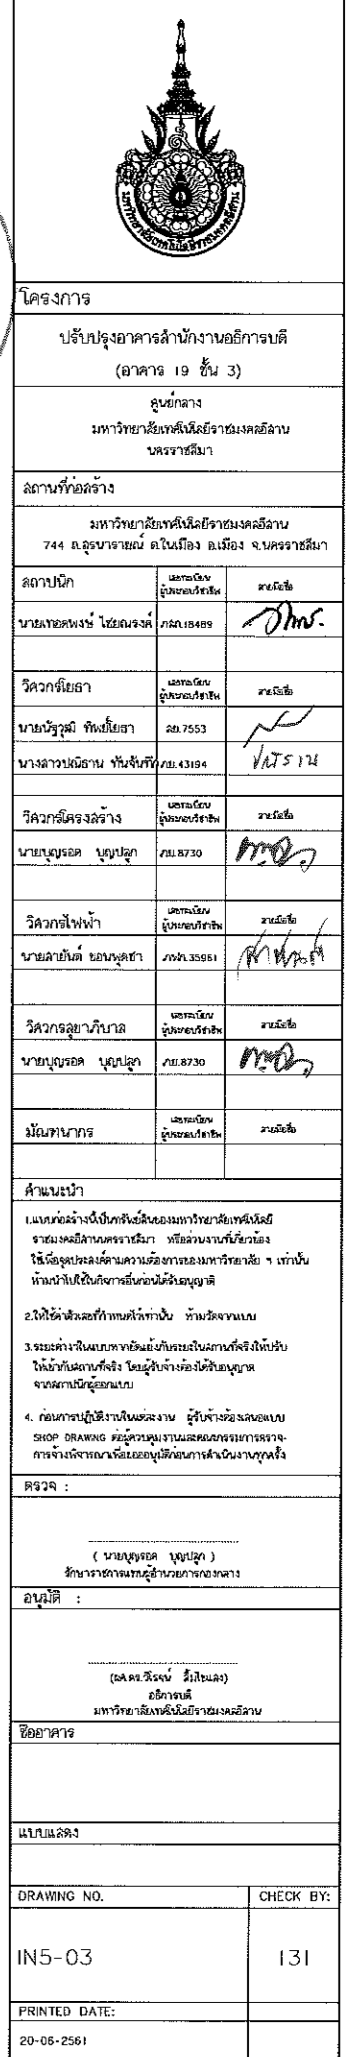 มหาวิทยาลัยเทคโนโลยีราชมงคลอีสาน
โครงการ
ปรับปรุงอาคารสำนักงานอธิการบดี
(อาคาร 19 ชั้น 3)
ศูนย์กลาง
มหาวิทยาลัยเทคโนโลยีราชมงคลอีสาน
นครราชสีมา
สถานที่ก่อสร้าง
มหาวิทยาลัยเทคโนโลยีราชมงคลอีสาน
744 ถ.สุรนารายณ์ ต.ในเมือง อ.เมือง จ.นครราชสีมา
สถาปนิก เลขทะเบียน ผู้ประกอบวิชาชีพ ลายมือชื่อ
นายเทอดพงษ์ ไชยณรงค์ ภสถ.18489
วิศวกรโยธา เลขทะเบียน ผู้ประกอบวิชาชีพ ลายมือชื่อ
นายนัฐวุฒิ ทิพย์โยธา สย.7553
นางสาวปณิธาน ทันจันทึก ภย.43194 ปณิธาน
วิศวกรโครงสร้าง เลขทะเบียน ผู้ประกอบวิชาชีพ ลายมือชื่อ
นายบุญรอด บุญปลูก ภย.8730
วิศวกรไฟฟ้า เลขทะเบียน ผู้ประกอบวิชาชีพ ลายมือชื่อ
นายสายันต์ ขอนพุดซา ภฟก.35961 สายันต์
วิศวกรสุขาภิบาล เลขทะเบียน ผู้ประกอบวิชาชีพ ลายมือชื่อ
นายบุญรอด บุญปลูก ภย.8730
มัณฑนากร เลขทะเบียน ผู้ประกอบวิชาชีพ ลายมือชื่อ
คำแนะนำ
1.แบบก่อสร้างนี้เป็นทรัพย์สินของมหาวิทยาลัยเทคโนโลยี
ราชมงคลอีสานนครราชสีมา หรือส่วนงานที่เกี่ยวข้อง
ใช้เพื่อจุดประสงค์ตามความต้องการของมหาวิทยาลัย ฯ เท่านั้น
ห้ามนำไปใช้ในกิจการอื่นก่อนได้รับอนุญาติ
2.ให้ใช้ค่าตัวเลขที่กำหนดไว้เท่านั้น ห้ามวัดจากแบบ
3.ระยะต่างๆในแบบหากขัดแย้งกับระยะในสถานที่จริงให้ปรับ
ให้เข้ากับสถานที่จริง โดยผู้รับจ้างต้องได้รับอนุญาต
จากสถาปนิกผู้ออกแบบ
4. ก่อนการปฏิบัติงานในแต่ละงาน ผู้รับจ้างต้องเสนอแบบ
SHOP DRAWING ต่อผู้ควบคุมงานและคณะกรรมการตรวจ-
การจ้างพิจารณาเพื่อขออนุมัติก่อนการดำเนินงานทุกครั้ง
ตรวจ :
( นายบุญรอด บุญปลูก )
รักษาราชการแทนผู้อำนวยการกองกลาง
อนุมัติ :
(ผศ.ดร.วิโรจน์ ลิ้มไขแสง)
อธิการบดี
มหาวิทยาลัยเทคโนโลยีราชมงคลอีสาน
ชื่ออาคาร
แบบแสดง
DRAWING NO. CHECK BY:
IN5-03 131
PRINTED DATE:
20-06-2561